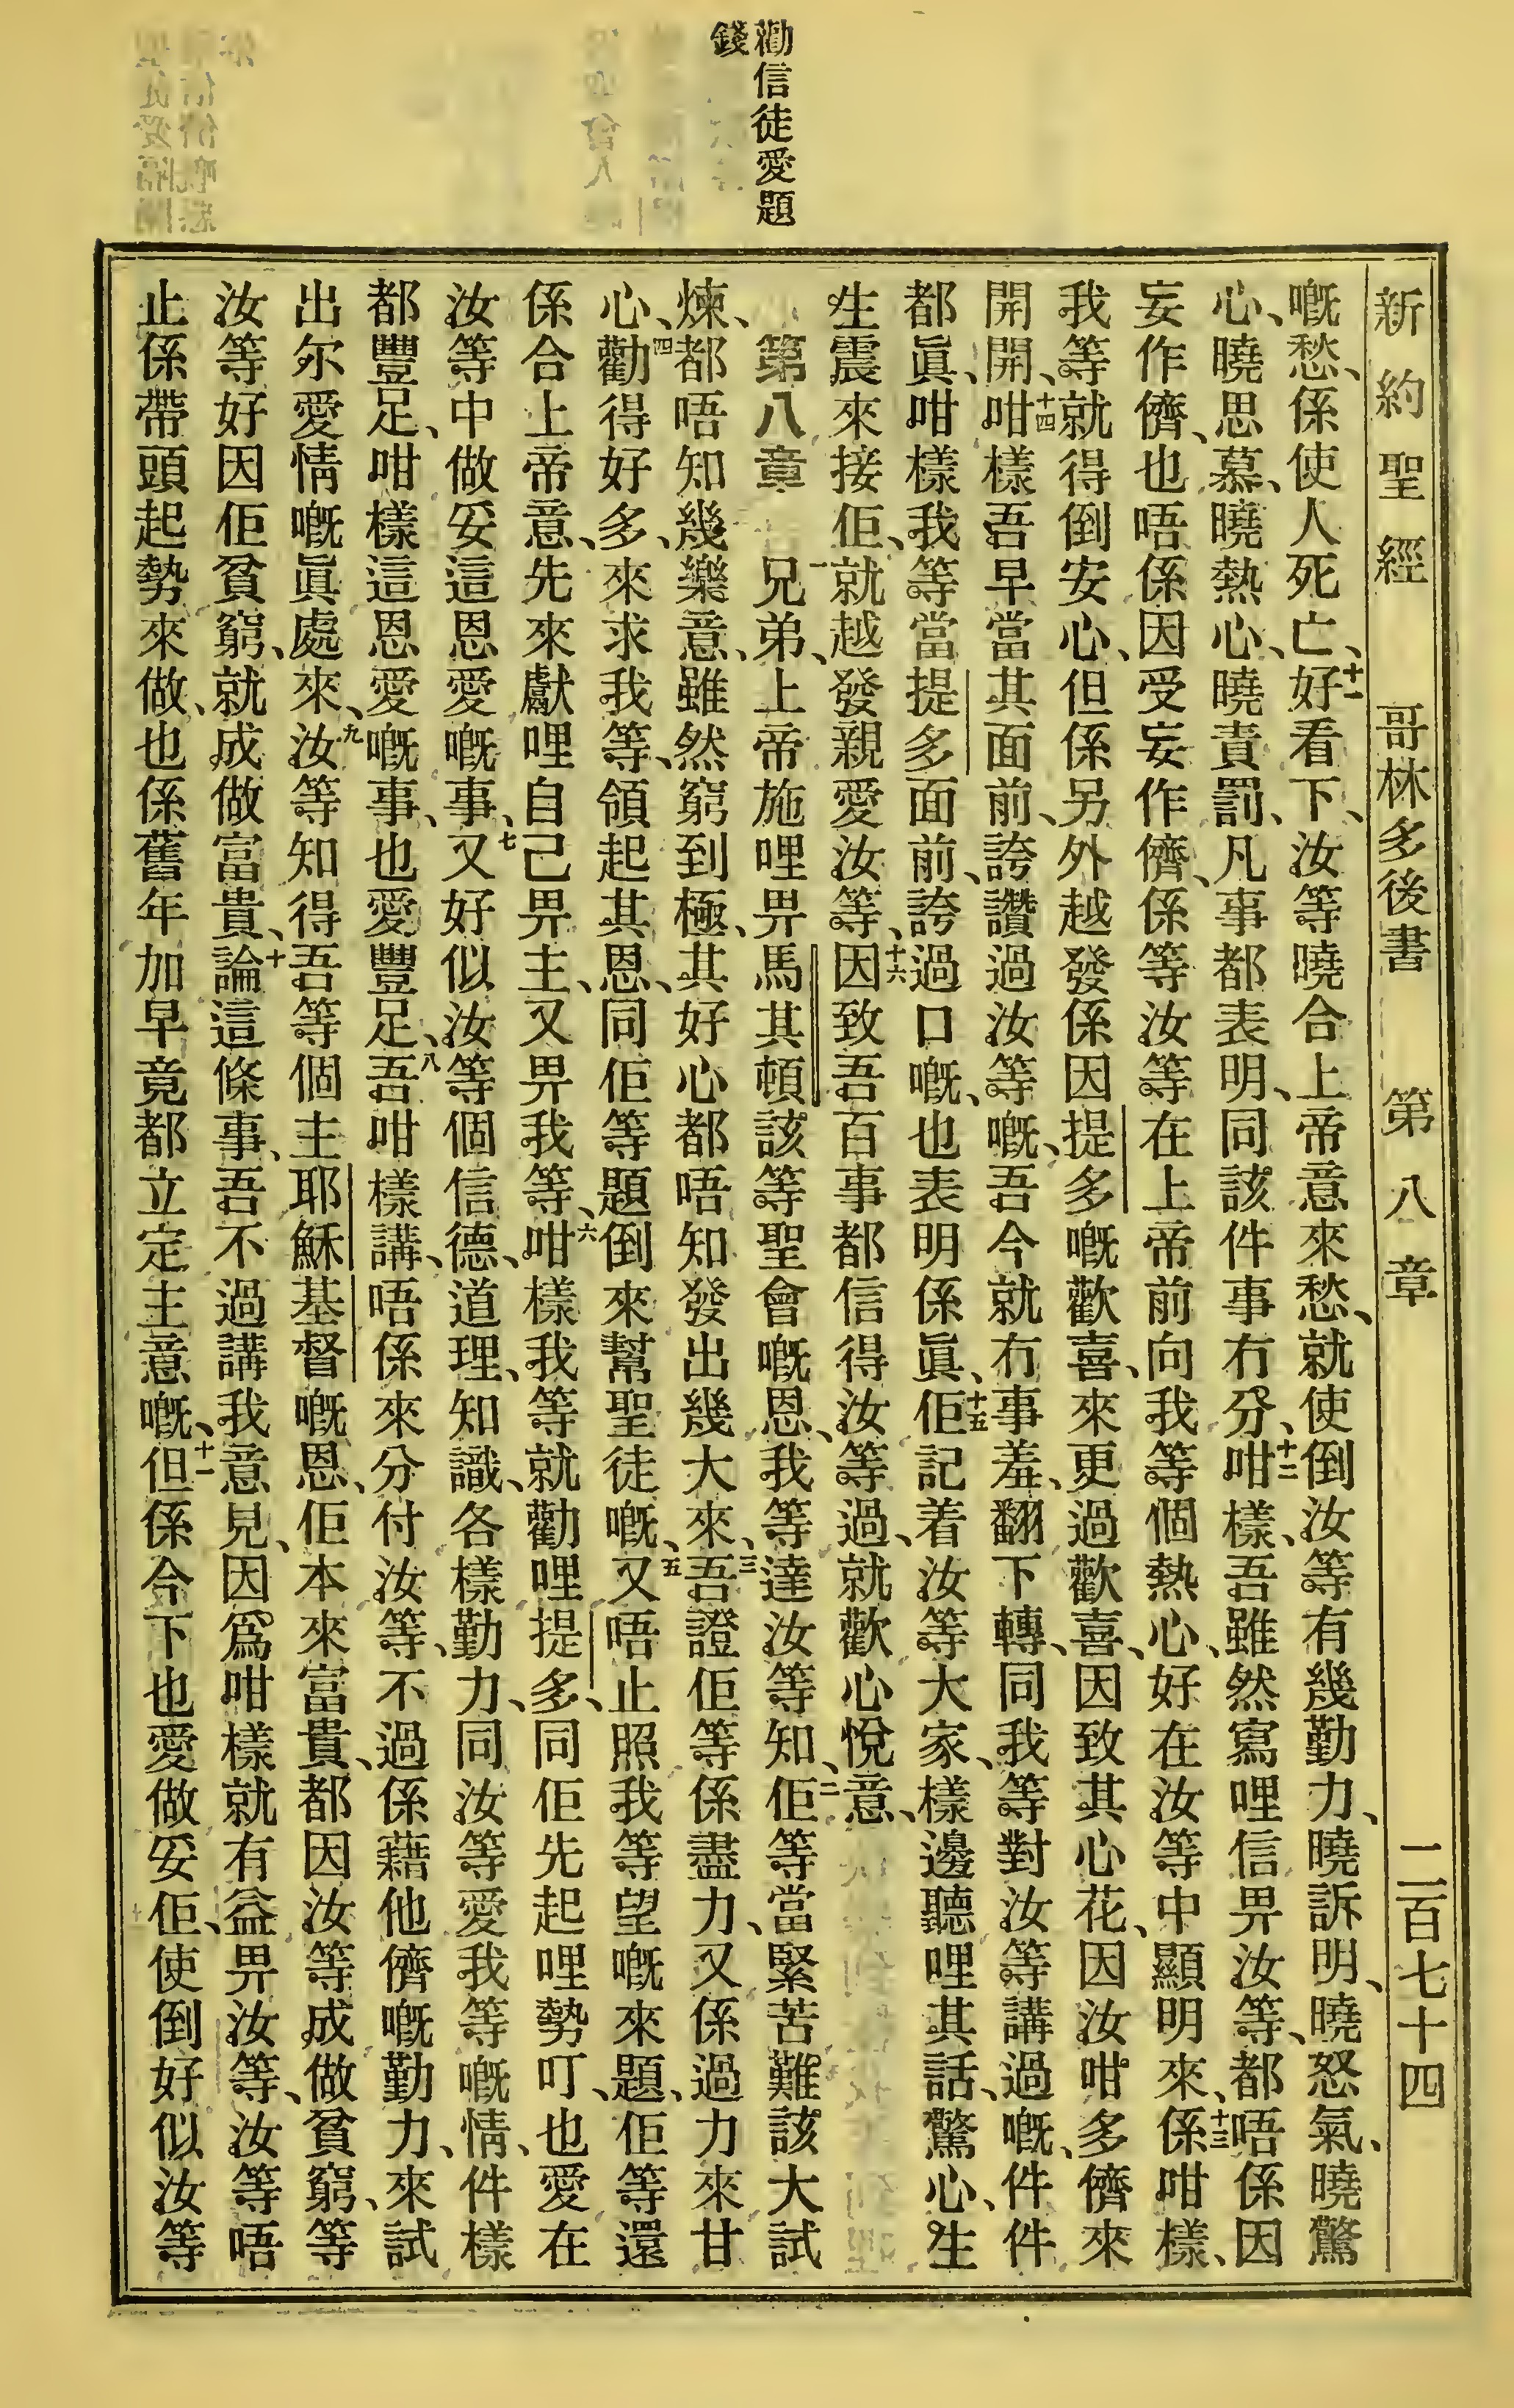 勸信徒愛題
錢
新約聖經 哥林多後書 第八章 二百七十四
嘅愁、係使人死亡、十一好看下、汝等曉合上帝意來愁、就使倒汝等有幾勤力、曉訴明、曉怒氣、曉驚
心、曉思慕、曉熱心、曉責罰、凡事都表明、同該件事冇分、十二咁樣、吾雖然寫哩信畀汝等、都唔係因
妄作儕、也唔係因受妄作儕、係等汝等在上帝前向我等個熱心、好在汝等中顯明來、十三係咁樣、
我等就得倒安心、但係另外越發係因提多嘅歡喜、來更過歡喜、因致其心花、因汝咁多儕來
開開、十四咁樣吾早當其面前、誇讚過汝等嘅、吾今就冇事羞、翻下轉、同我等對汝等講過嘅、件件
都眞、咁樣我等當提多面前、誇過口嘅、也表明係眞、十五佢記着汝等大家、樣邊聽哩其話、驚心、生
生震來接佢、就越發親愛汝等、十六因致吾百事都信得汝等過、就歡心悅意、
第八章 一兄弟、上帝施哩畀馬其頓該等聖會嘅恩、我等達汝等知、二佢等當緊苦難該大試
煉、都唔知幾樂意、雖然窮到極、其好心都唔知發出幾大來、三吾證佢等係盡力、又係過力來甘
心、四勸得好多、來求我等、領起其恩、同佢等題倒來幫聖徒嘅、五又唔止照我等望嘅來題、佢等還
係合上帝意、先來獻哩自己畀主、又畀我等、六咁樣我等就勸哩提多、同佢先起哩勢叮、也愛在
汝等中做妥這恩愛嘅事、七又好似汝等個信德、道理、知識、各樣勤力、同汝等愛我等嘅情、件樣
都豐足、咁樣這恩愛嘅事、也愛豐足、八吾咁樣講、唔係來分付汝等、不過係藉他儕嘅勤力、來試
出尔愛情嘅眞處來、九汝等知得吾等個主耶穌基督嘅恩、佢本來富貴、都因汝等成做貧窮、等
汝等好因佢貧窮、就成做富貴、十論這條事、吾不過講我意見、因爲咁樣就有益畀汝等、汝等唔
止係帶頭起勢來做、也係舊年加早竟都立定主意嘅、十一但係今下也愛做妥佢、使倒好似汝等